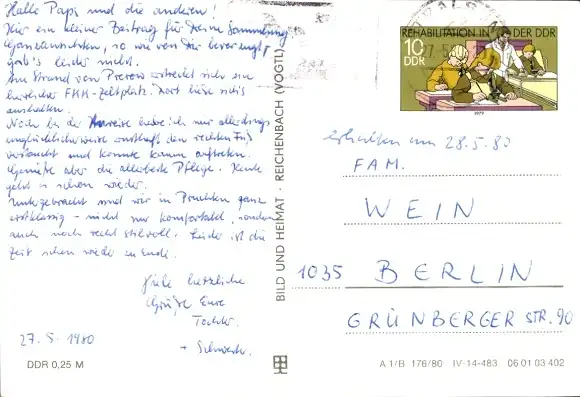 Hallo Papi und die anderen!
Hier ein kleiner Beitrag für Deine Sammlung
Ganzansichten, so wie von Dir bevorzugt,
gab's leider nicht.
Am Strand von Prerow erstreckt sich ein
herrlicher FKK-Zeltplatz. Dort ließe sich's
aushalten.
Noch bei der Anreise habe ich mir allerdings
unglücklicherweise ernsthaft den rechten Fuß
verstaucht und konnte kaum auftreten.
Genieße aber die allerbeste Pflege. Heute
geht's schon wieder.
Untergebracht sind wir in Pruchten ganz
erstklassig - nicht nur komfortabel, sondern
auch noch recht stilvoll. Leider ist die
Zeit schon wieder zu Ende.
Viele herzliche
Grüße Eure
Tochter
+ Schwester.
27.5.1980
DDR 0,25 M
BILD UND HEIMAT · REICHENBACH (VOGTL)
REHABILITATION IN DER DDR
10
DDR
1979
erhalten am 28.5.80
FAM.
WEIN
1035 BERLIN
GRÜNBERGER STR. 90
A 1/B 176/80 IV-14-483 06 01 03 402